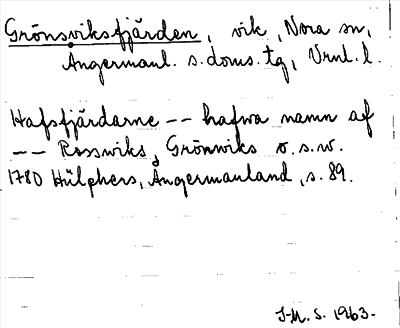 Grönsviksfjärden, vik, Nora sn,
Ångermanl. s. doms. tg, Vrnl. l.
Hafsfjärdarne -- hafwa namn af
-- Rossviks, Grönwiks o.s.w.
1780 Hülphers, Ångermanland, s. 89.
J-M. S. 1963.